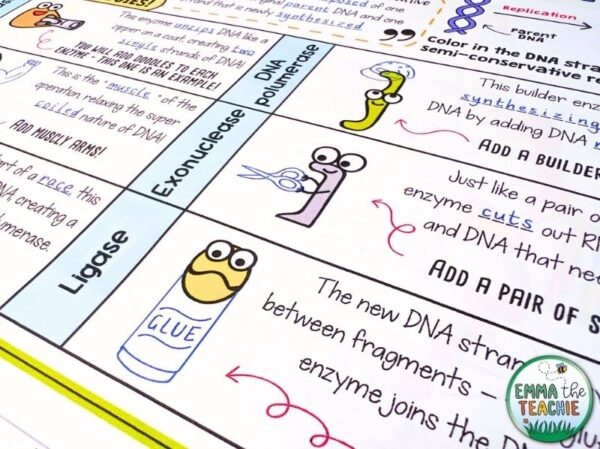 This enzyme unzips DNA like a
zipper on a coat, creating two
single strands of DNA!
YOU WILL ADD DOODLES TO EACH
ENZYME - THIS ONE IS AN EXAMPLE!
This is the "muscle" of the
operation relaxing the super
coiled nature of DNA!
ADD MUSCLY ARMS!
of a race, this
DNA, creating a
composed of one
original parent DNA and one
strand that is newly synthesized
Replication
Parent
DNA
Color in the DNA
semi-conservative
DNA
polymerase
This builder
synthesizing
DNA by adding DNA
ADD A BUILDER
Exonuclease
Just like a pair of
enzyme cuts out
and DNA that
ADD A PAIR OF
Ligase
GLUE
The new DNA
between fragments -
enzyme joins the
EMMA the
TEACHIE